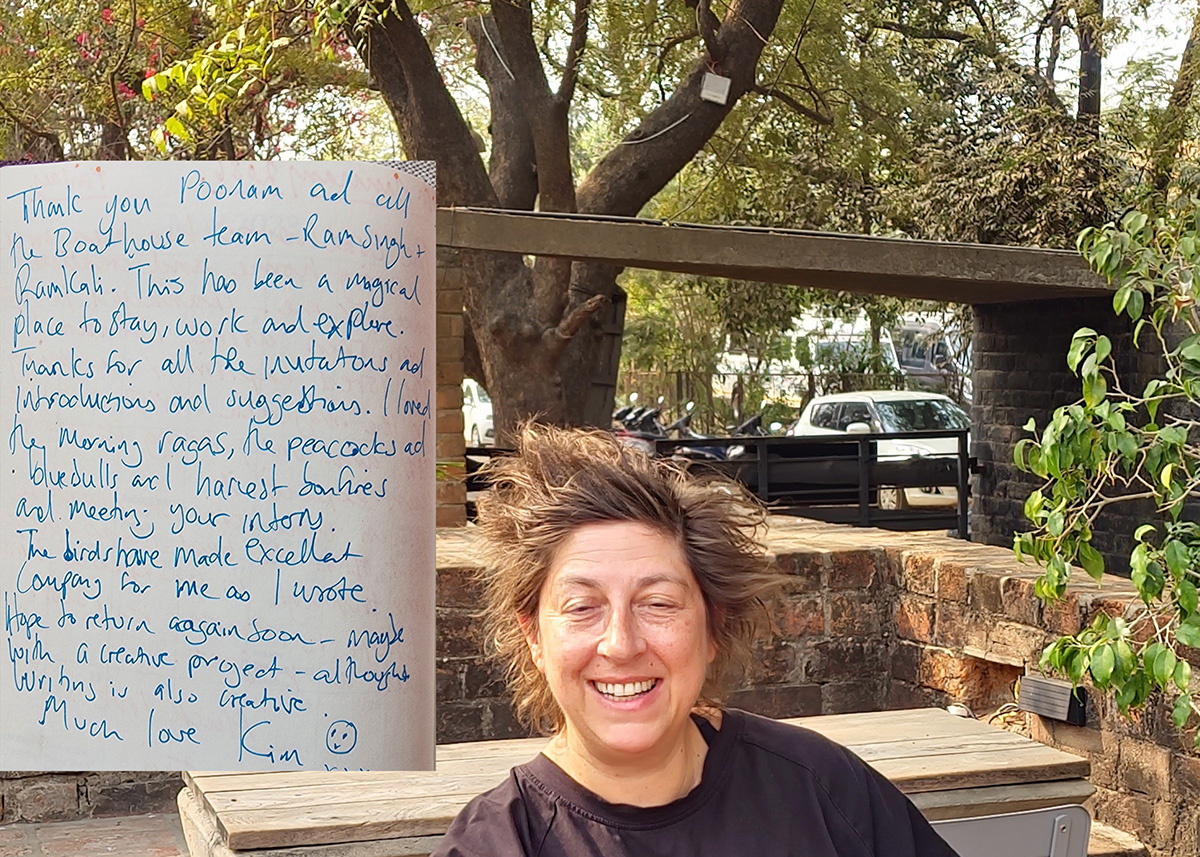 Thank you Poonam ad all
the Boathouse team - Ramsingh +
Ramkali. This has been a magical
place to stay, work and explore.
Thanks for all the invitations ad
introductions and suggestions. I loved
the morning ragas, the peacocks ad
bluebulls and harvest bonfires
and meeting your intory.
The birds have made excellent
company for me as I wrote.
Hope to return aagain soon - maybe
with a creative project - although
writing is also creative.
Much love Kim